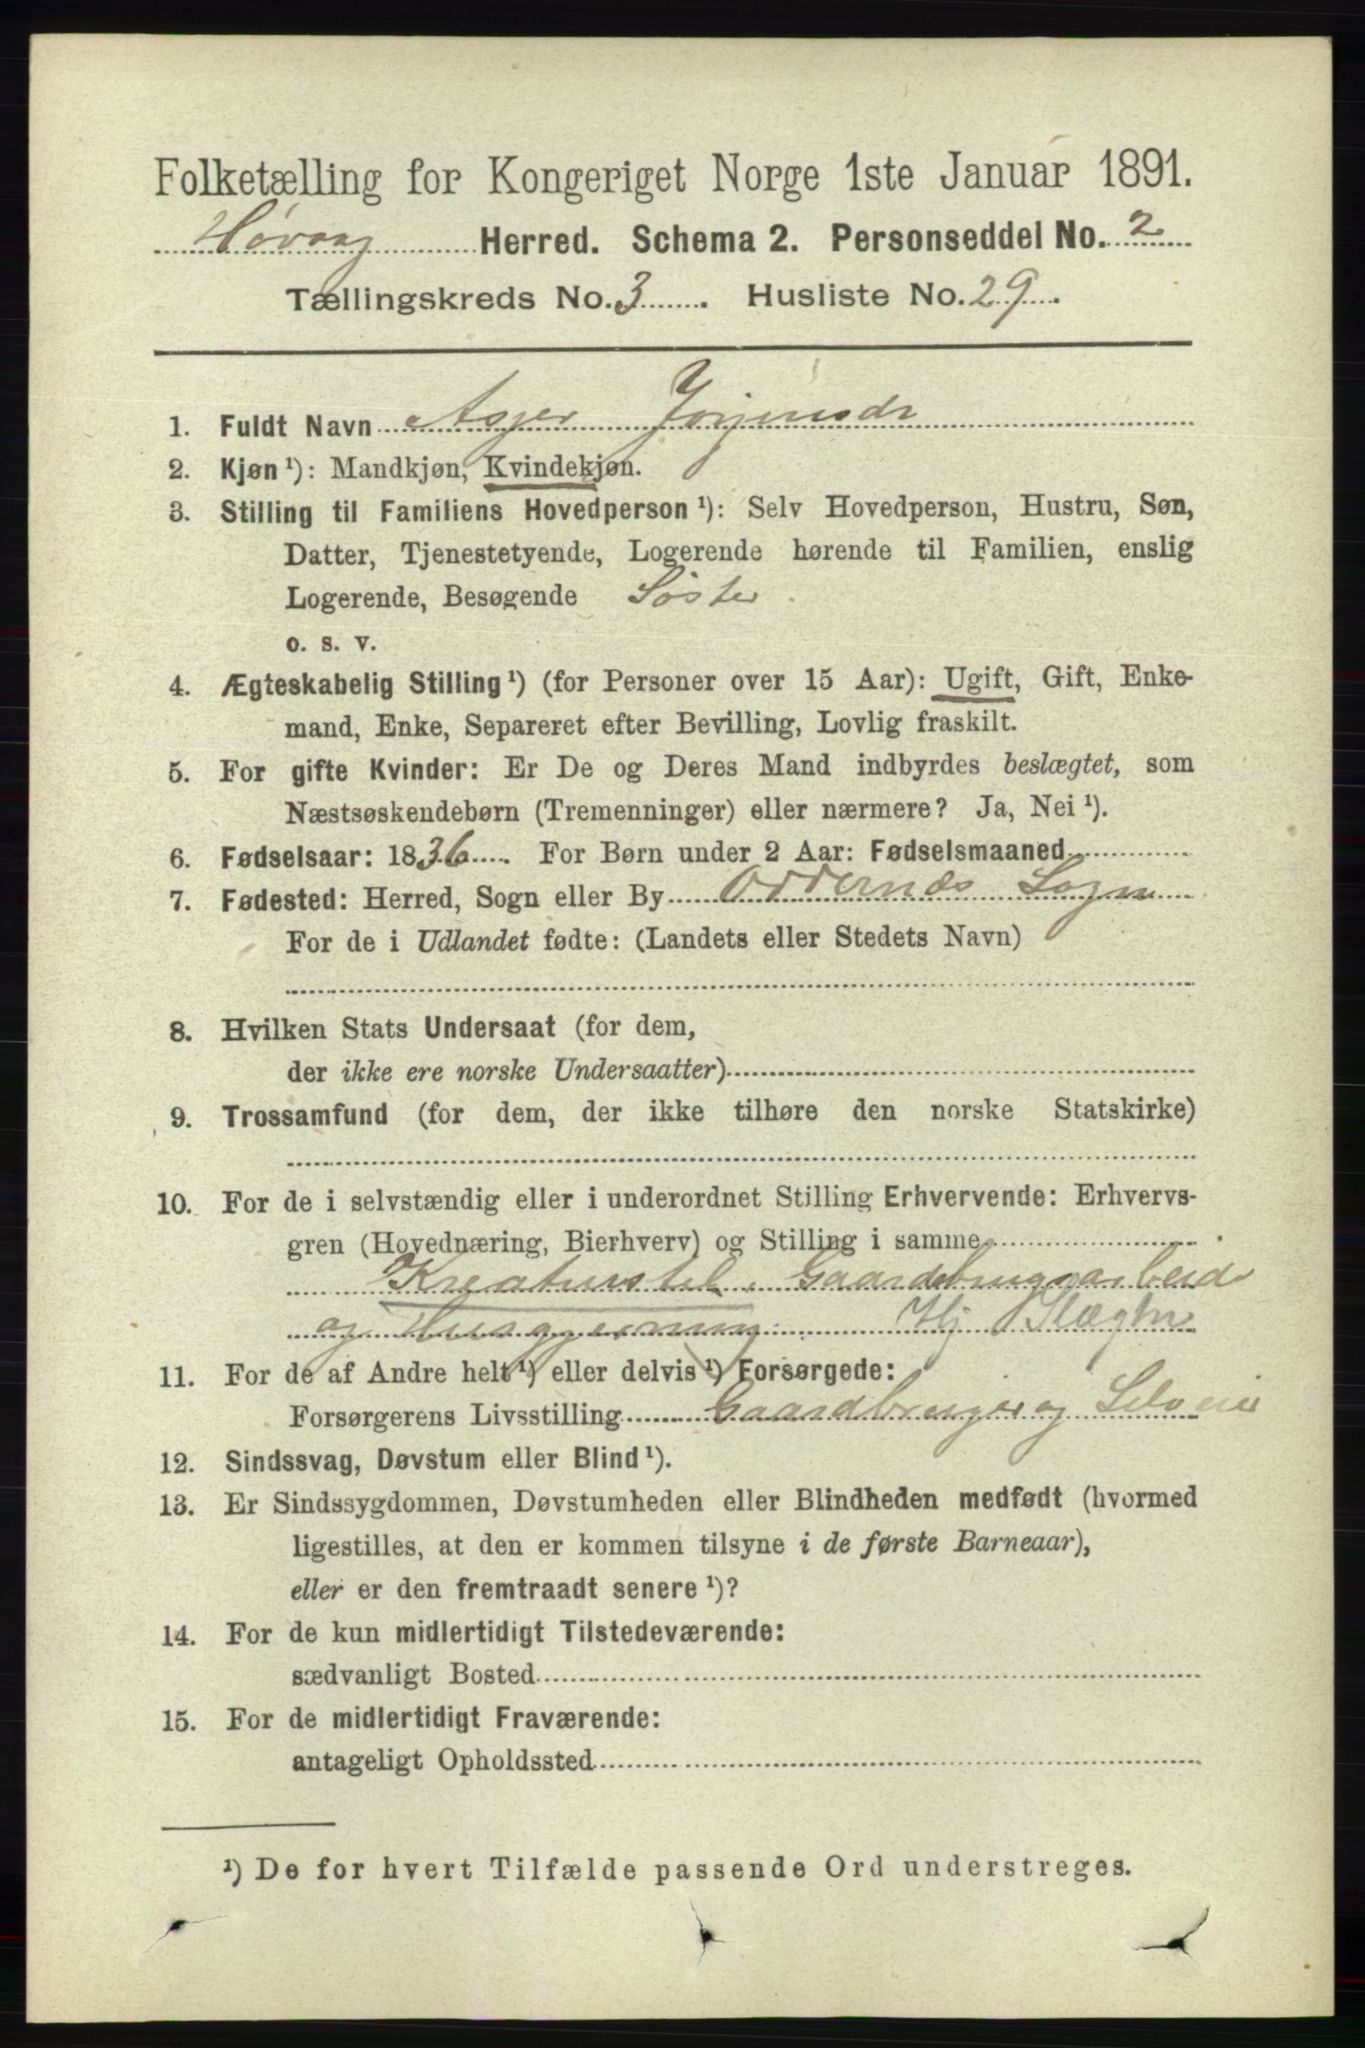 Folketælling for Kongeriget Norge 1ste Januar 1891.
Høvaag Herred. Schema 2. Personseddel No. 2
Tællingskreds No. 3. Husliste No. 29.
1. Fuldt Navn Asjer Jörjensdr
2. Kjøn ¹): Mandkjøn, Kvindekjøn.
3. Stilling til Familiens Hovedperson ¹): Selv Hovedperson, Hustru, Søn,
Datter, Tjenestetyende, Logerende hørende til Familien, enslig
Logerende, Besøgende Söster.
o. s. v.
4. Ægteskabelig Stilling ¹) (for Personer over 15 Aar): Ugift, Gift, Enke-
mand, Enke, Separeret efter Bevilling, Lovlig fraskilt.
5. For gifte Kvinder: Er De og Deres Mand indbyrdes beslægtet, som
Næstsøskendebørn (Tremenninger) eller nærmere? Ja, Nei ¹).
6. Fødselsaar: 1836. For Børn under 2 Aar: Fødselsmaaned
7. Fødested: Herred, Sogn eller By Oddernæs Sogn
For de i Udlandet fødte: (Landets eller Stedets Navn)
8. Hvilken Stats Undersaat (for dem,
der ikke ere norske Undersaatter)
9. Trossamfund (for dem, der ikke tilhøre den norske Statskirke)
10. For de i selvstændig eller i underordnet Stilling Erhvervende: Erhvervs-
gren (Hovednæring, Bierhverv) og Stilling i samme
Kreaturstel, Gaardsbrugsarbeid
og Husgjerning Hj Slægtn
11. For de af Andre helt ¹) eller delvis ¹) Forsørgede:
Forsørgerens Livsstilling Gaardbruger og Selveier
12. Sindssvag, Døvstum eller Blind ¹).
13. Er Sindssygdommen, Døvstumheden eller Blindheden medfødt (hvormed
ligestilles, at den er kommen tilsyne i de første Barneaar),
eller er den fremtraadt senere ¹)?
14. For de kun midlertidigt Tilstedeværende:
sædvanligt Bosted
15. For de midlertidigt Fraværende:
antageligt Opholdssted
¹) De for hvert Tilfælde passende Ord understreges.